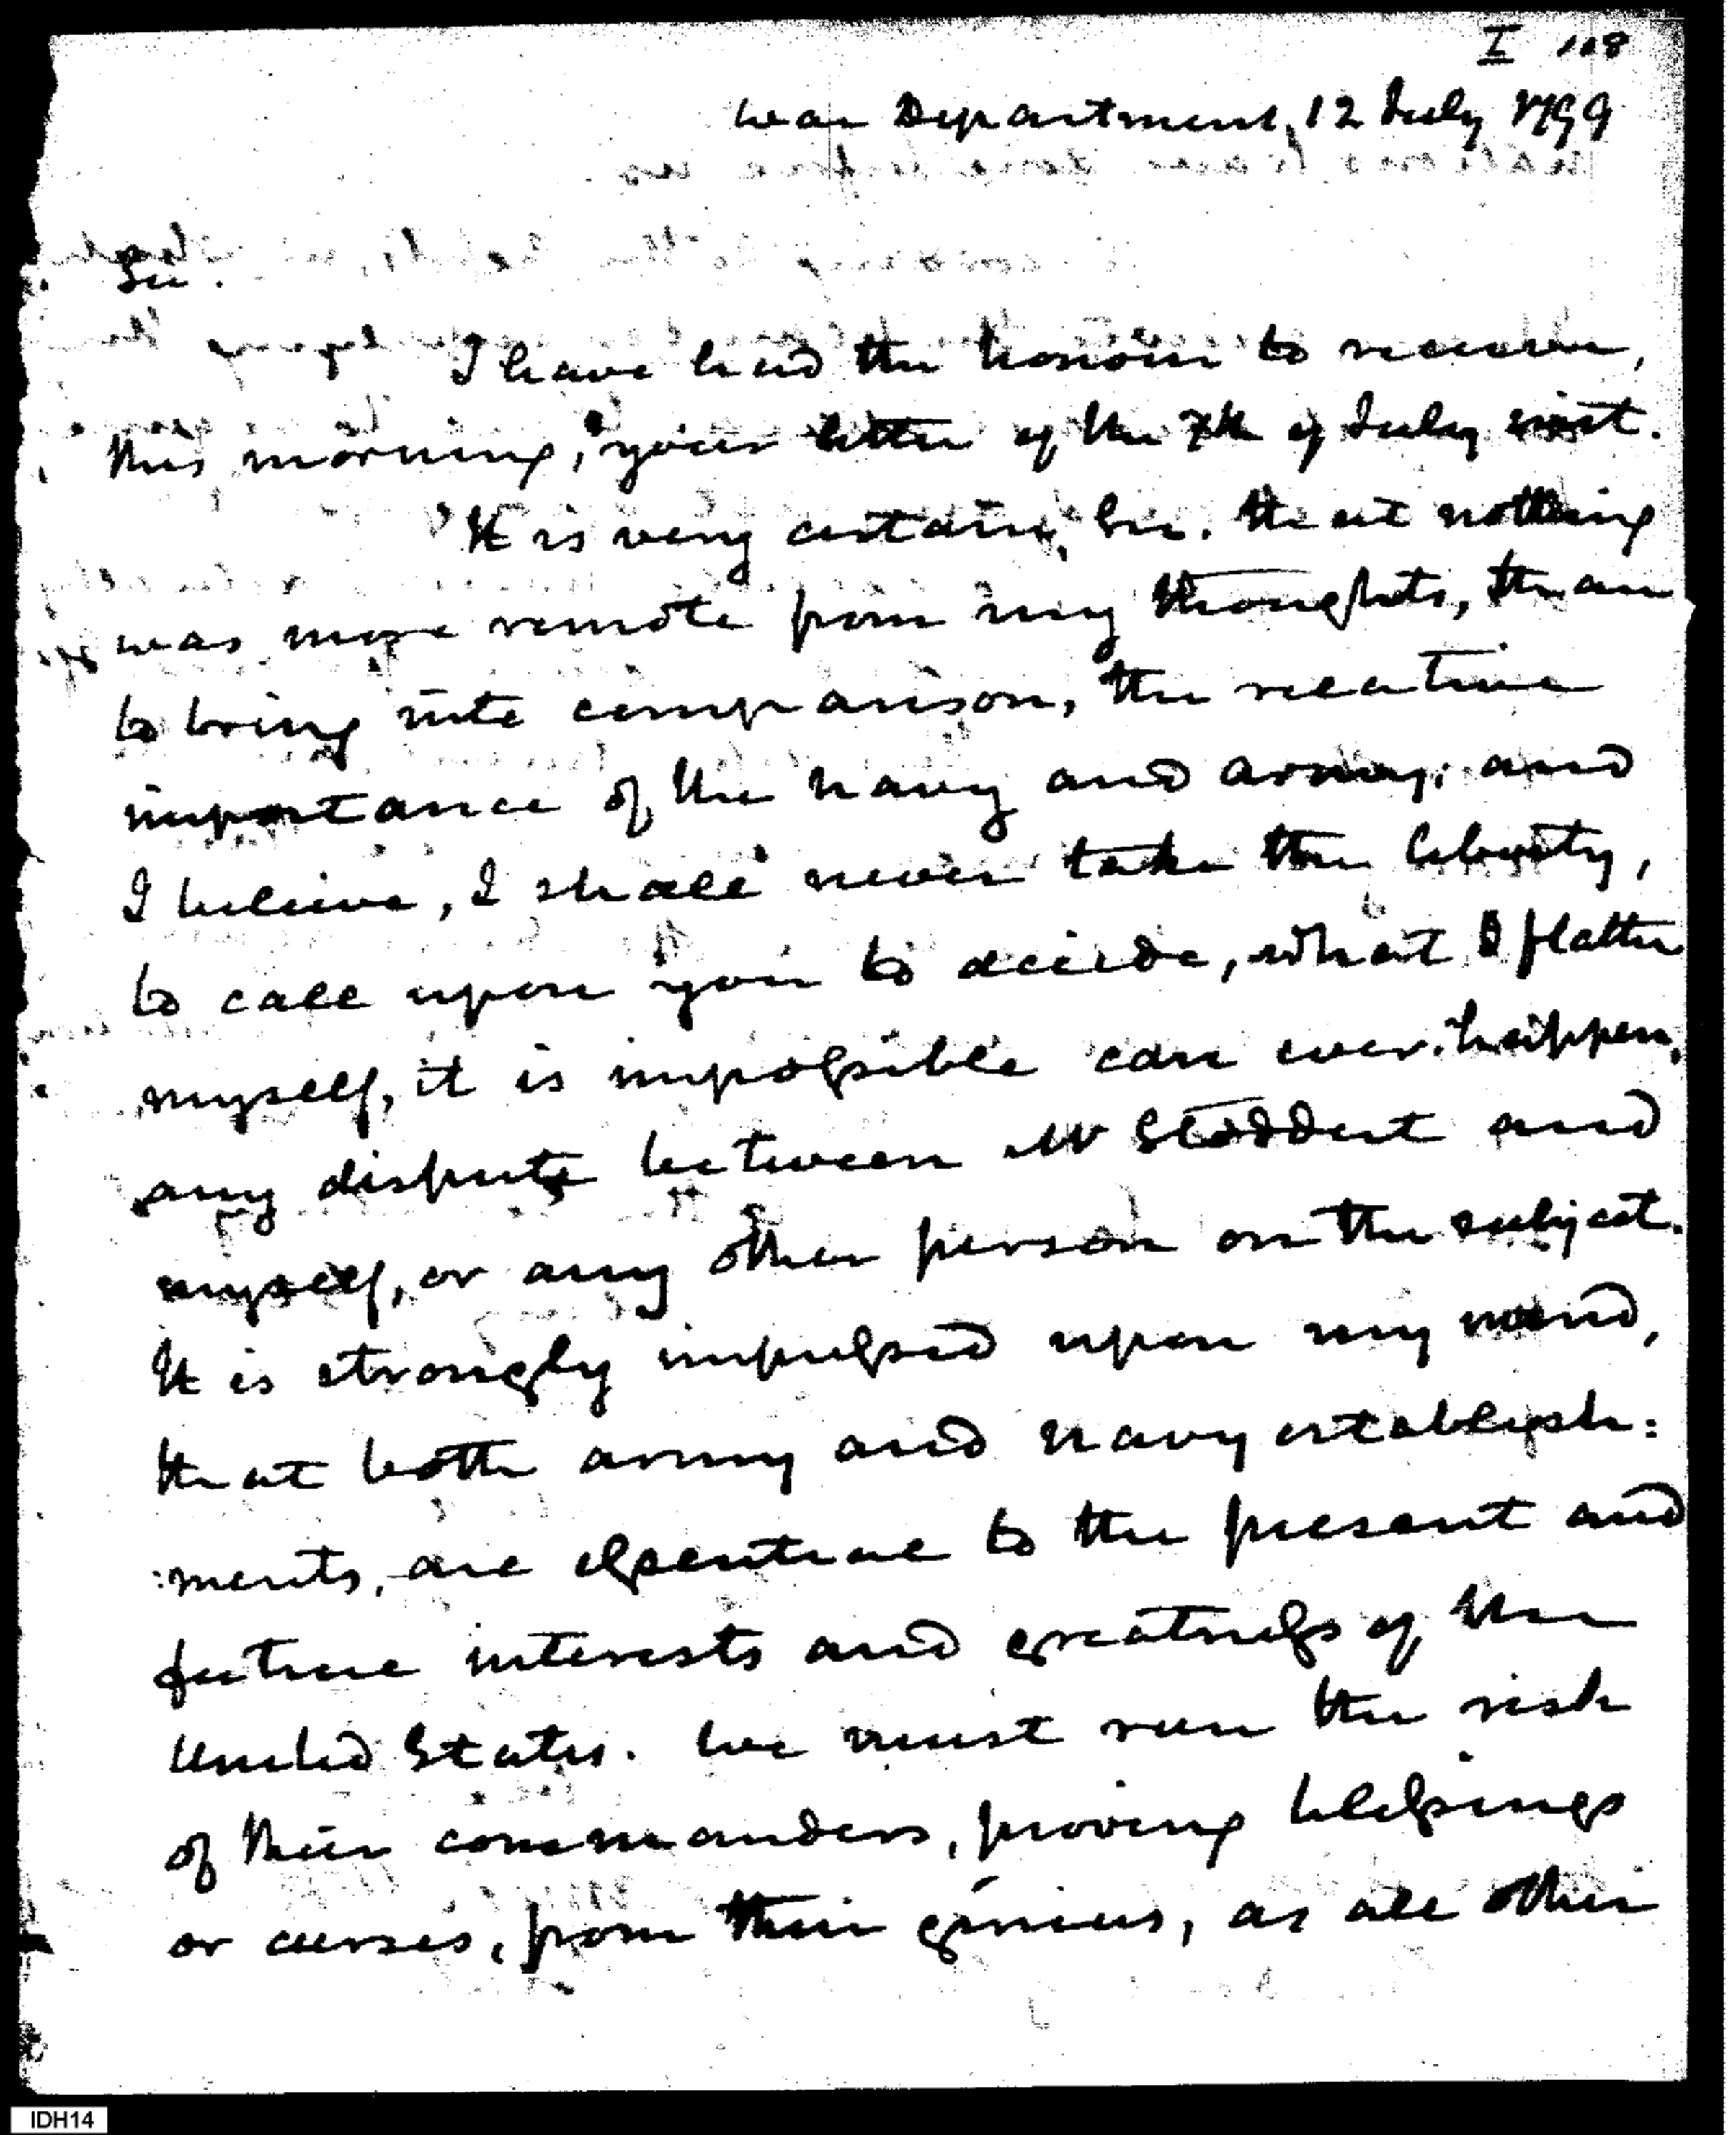 I 108
War Department, 12 July 1799
Sir.
I have had the honour to receive,
this morning, your letter of the 7th of July inst.
It is very certain, Sir. that nothing
was more remote from my thoughts, than
to bring into comparison, the relative
importance of the navy and army; and
I believe, I shall never take the liberty,
to call upon you to decide, what I flatter
myself, it is impossible can ever happen,
any dispute between Mr Stoddert and
myself, or any other person on the subject.
It is strongly impressed upon my mind,
that both army and navy establish:
:ments, are essential to the present and
future interests and greatness of the
United States. We must run the risk
of their commanders, proving blessings
or curses, from their genius, as all other
IDH14